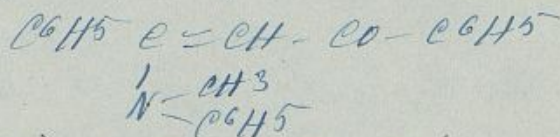 C6H5 C = CH - CO - C6H5
N - CH3
- C6H5